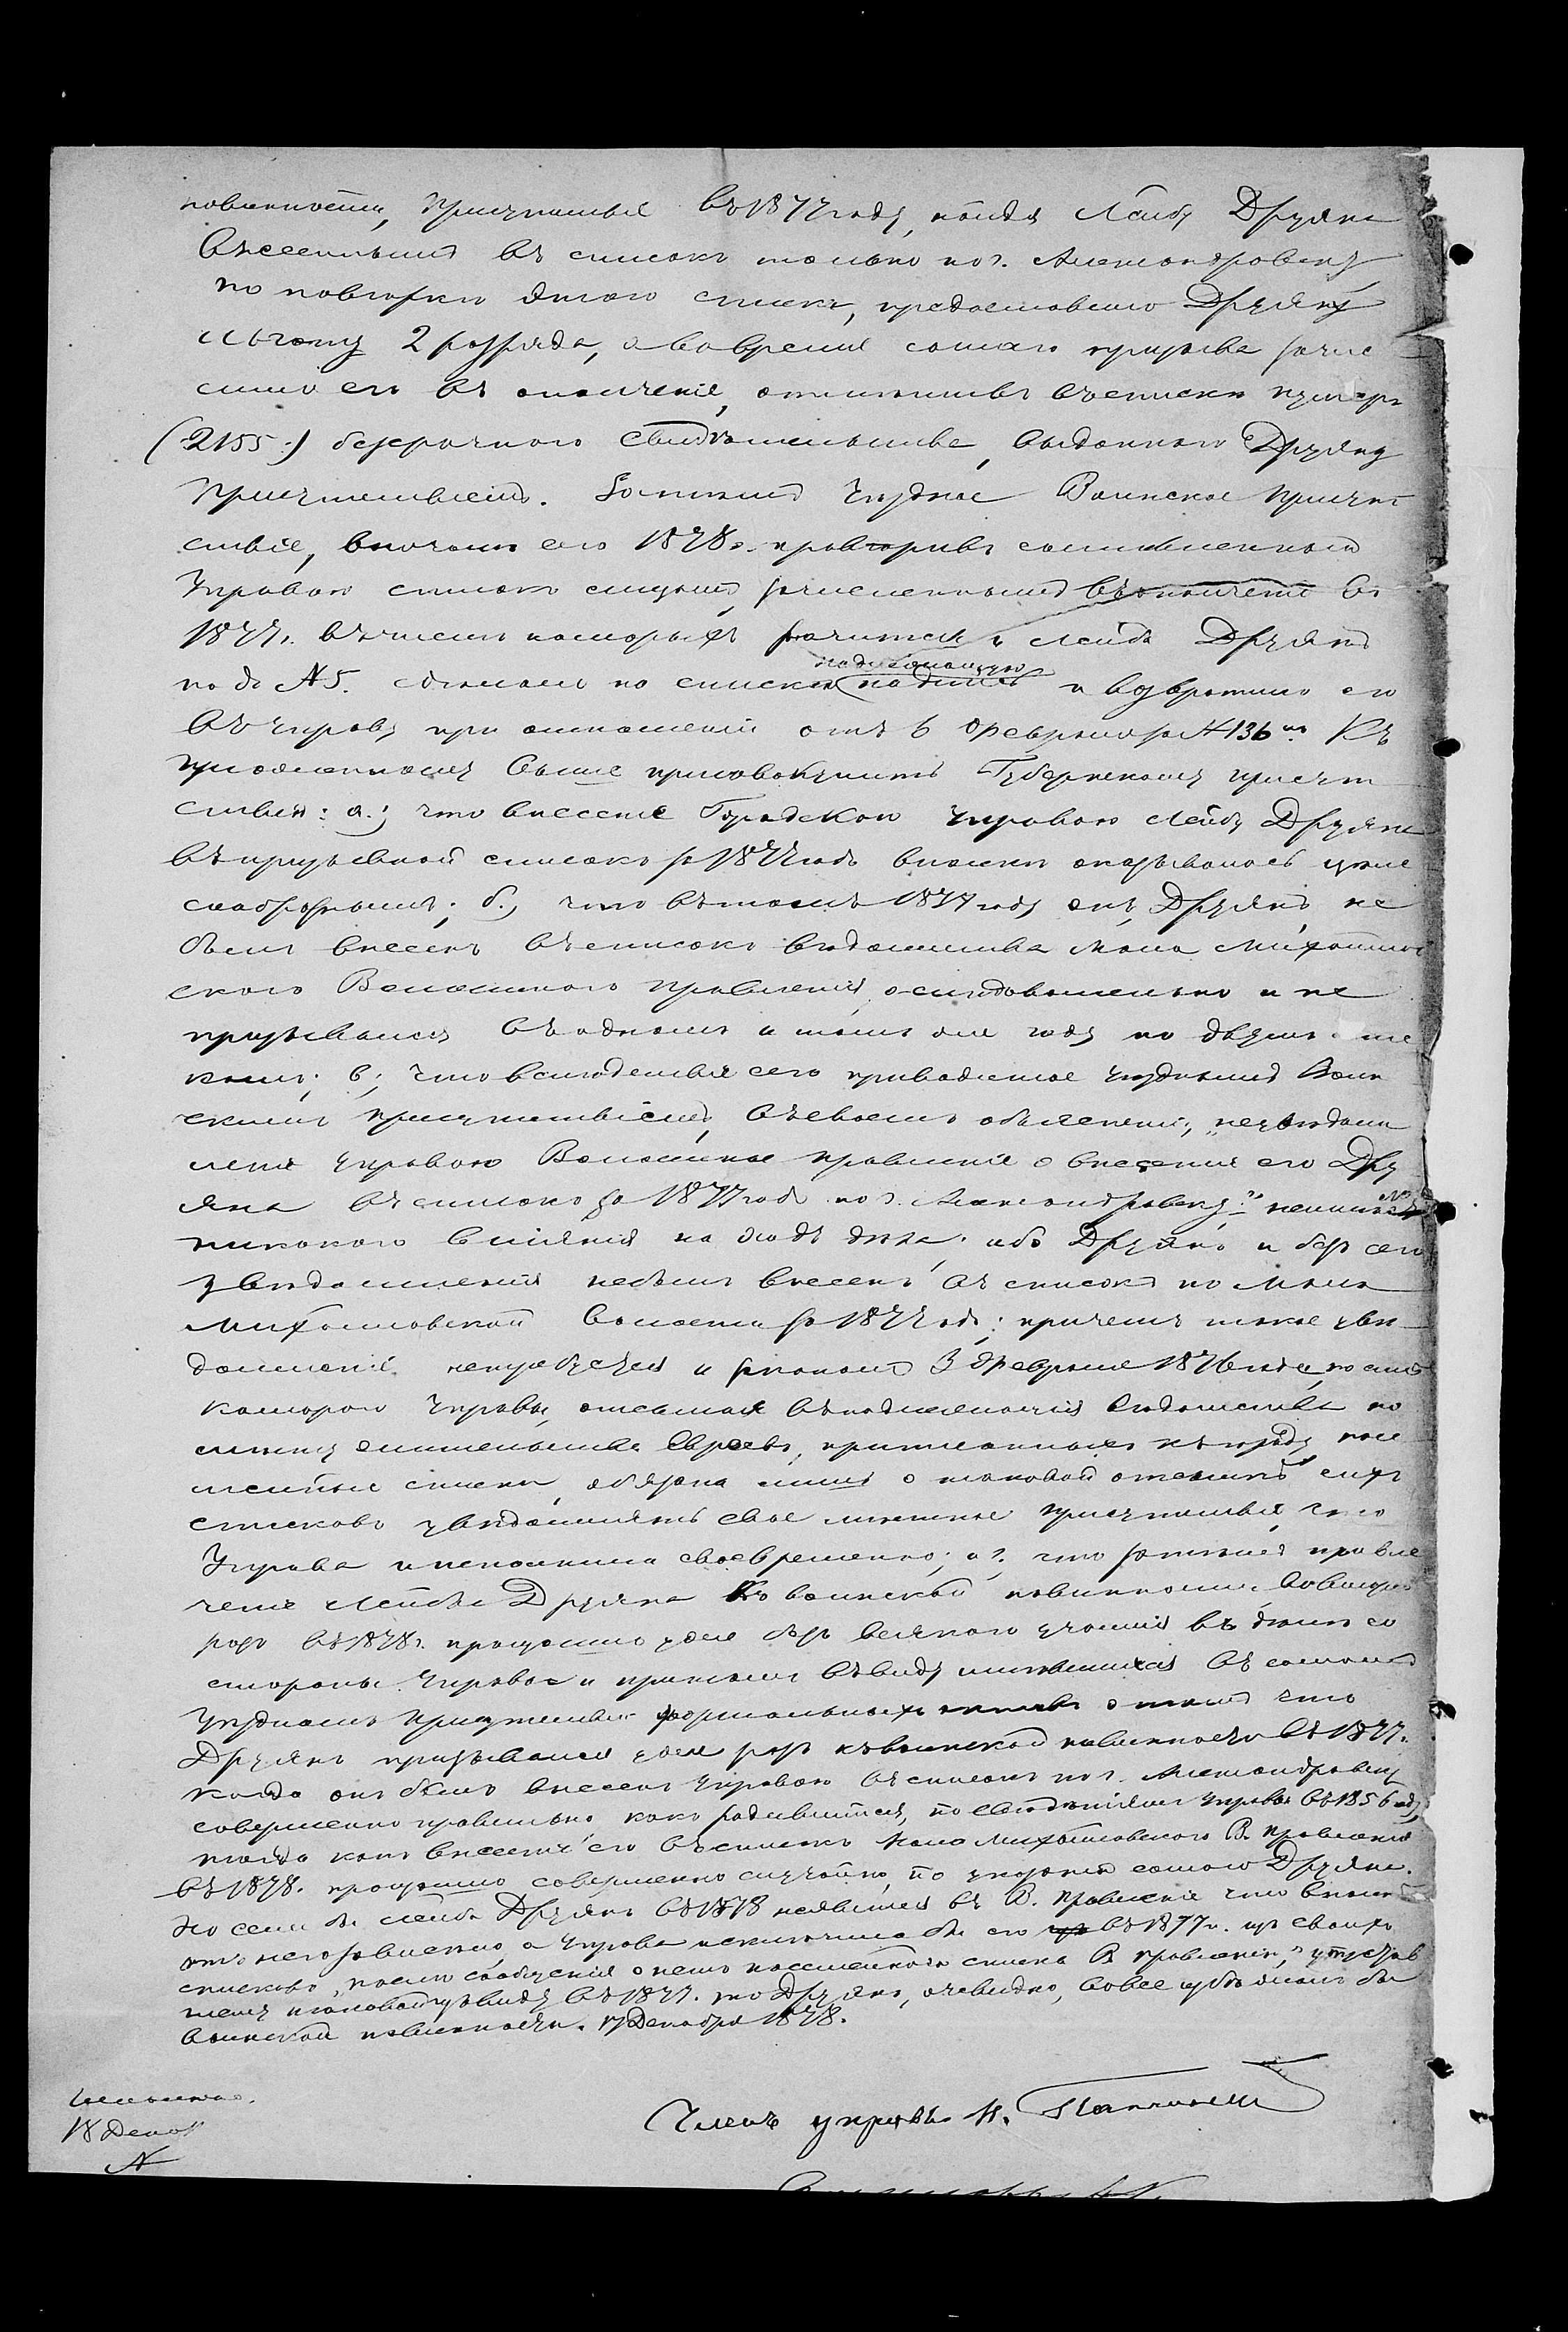 повинности, Присутствіе въ 1877 году, найдя Лейбу Друяна
внесеннымъ въ списокъ только по г. Александровску,
по повѣркѣ этого списка, предоставило Друяну
льготу 2 разряда, а во время самаго призыва зачис
лило его въ ополченіе, отмѣтивъ въ спискѣ нумеръ
(2155) безсрочнаго свидѣтельства, выданнаго Друяну
Присутствіемъ. Затѣмъ Уѣздное Воинское Присут
ствіе, въ началѣ сего 1878 г. провѣривъ составленный
Управою списокъ лицамъ, зачисленнымъ въ ополченіе въ
1877 г. въ числѣ которыхъ значится и Лейба Друянъ
подъ № 5. сдѣлало на спискѣ надлежащую надпись и возвратило его
въ Управу при отношеніи отъ 6 Февраля за № 136. Къ
изложенному выше присовокупить Губернскому Присут
ствію: а.; что внесеніе Городскою Управою Лейбы Друяна
въ призывной списокъ за 1877 годъ вполнѣ оказывалось цѣле
сообразнымъ; б., что въ томъ 1877 году онъ, Друянъ, не
былъ внесенъ въ списокъ вѣдомства Мало Михайлов
скаго Волостнаго Правленія, а слѣдовательно и не
призывался въ одномъ и томъ же году по двумъ спис
камъ; в; что вслѣдствіе сего приводимое Уѣзднымъ Воин
скимъ Присутствіемъ, въ своемъ объясненіи, „неувѣдом
леніе Управою Волостное Правленіе о внесеніи его Дру
яна въ списокъ за 1877 годъ по г. Александровску“ не имѣло
никакого вліянія на ходъ дѣла; ибо Друянъ и безъ сего
увѣдомленія не былъ внесенъ въ списокъ по Мало
Михайловской волости за 1877 годъ; причемъ такое увѣ
домленіе не требуется и закономъ 3 Февраля 1876 года, по силѣ
котораго Управы, отсылая въ подлежащія вѣдомства по
мѣсту жительства Евреевъ, приписанныхъ къ городу, посе
мейные списки, обязана лишь о таковой отсылкѣ сихъ
списковъ увѣдомлять свое мѣстное Присутствіе, что
Управа и исполнила своевременно; и г. что затѣмъ привле
ченіе Лейбы Друяна къ воинской повинности во второй
разъ въ 1878 г. произошло уже безъ всякаго участія въ томъ со
стороны Управы и при томъ въ виду имѣвшихся въ самомъ
Уѣздномъ Присутствіи формальныхъ о томъ что
Друянъ призывался уже разъ къ воинской повинности въ 1877 г.
когда онъ былъ внесенъ Управою въ списокъ по г. Александровску
совершенно правильно какъ родившійся, по свѣдѣніямъ Управы въ 1856 году,
тогда какъ внесеніе его въ списокъ Мало Михайловскаго В. Правленія
въ 1878 г. произошло совершенно случайно, по указанію самого Друяна.
Но если бы Лейба Друянъ въ 1878 не явился въ В. Правленіе что вполнѣ
отъ него зависѣло, а Управа исключила бы его въ 1877 г. изъ своихъ
списковъ, послѣ сообщенія о немъ посемейнаго списка В. Правленію,
въ 1877 г. то Друянъ, очевидно, вовсе избѣжалъ бы
воинской повинности. 17 Декабря 1878.
Членъ управы
18 Декаб
№